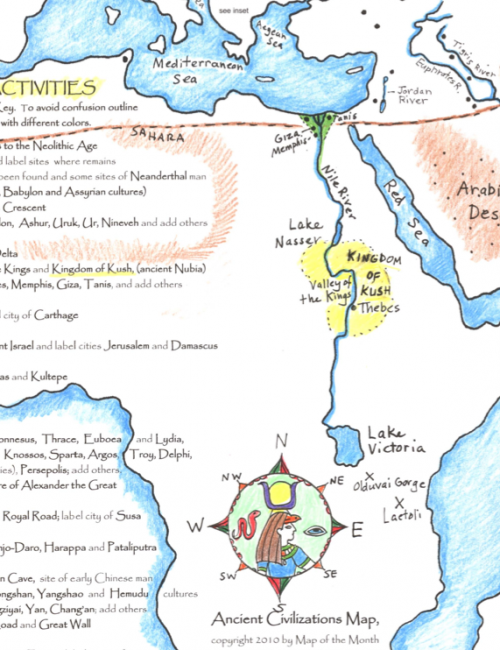 see inset
Aegean
Sea
Mediterranean
Sea
Tigris River
Euphrates R.
Jordan
River
ACTIVITIES
Key. To avoid confusion outline
with different colors.
SAHARA
Tanis
Giza
Memphis
to the Neolithic Age
d label sites where remains
been found and some sites of Neanderthal man
Babylon and Assyrian cultures)
Crescent
lon, Ashur, Uruk, Ur, Nineveh and add others
Nile River
Red Sea
Arabi
Des
Lake
Nasser
Delta
e Kings and Kingdom of Kush, (ancient Nubia)
es, Memphis, Giza, Tanis, and add others
KINGDOM
OF
KUSH
Valley of
the Kings
Thebes
d city of Carthage
nt Israel and label cities Jerusalem and Damascus
as and Kultepe
Lake
Victoria
onnesus, Thrace, Euboea and Lydia,
Knossos, Sparta, Argos, Troy, Delphi,
ies), Persepolis; add others,
re of Alexander the Great
Royal Road; label city of Susa
njo-Daro, Harappa and Pataliputra
n Cave, site of early Chinese man
ongshan, Yangshao and Hemudu cultures
gziyai, Yan, Chang'an; add others
oad and Great Wall
N
NW
NE
W
E
SW
SE
S
X
Olduvai Gorge
X
Laetoli
Ancient Civilizations Map,
copyright 2010 by Map of the Month